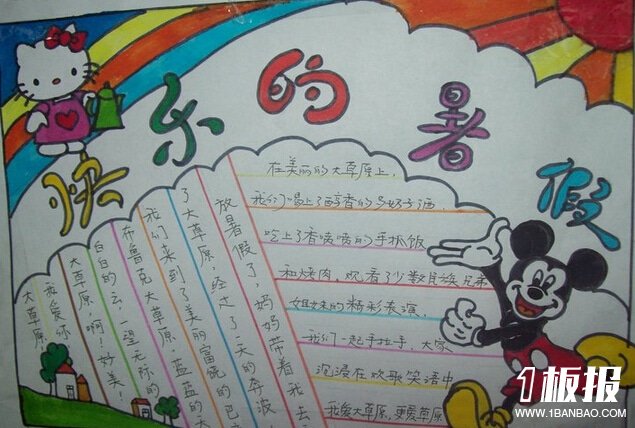 快乐的暑假
放暑假了，妈妈带着我去
了大草原，经过了一天的奔波，
我们来到了美丽富饶的巴
布鲁克大草原，蓝蓝的
白白的云，一望无际的
大草原，啊！好美！
我爱你
大草原
在美丽的大草原上，
我们喝上了醇香的马奶子酒
吃上了香喷喷的手抓饭
和烤肉，观看了少数民族兄弟
姐妹的精彩表演，
我们一起手拉手，大家
沉浸在欢歌笑语中
我爱大草原，更爱草原
1板报
WWW.1BANBAO.COM